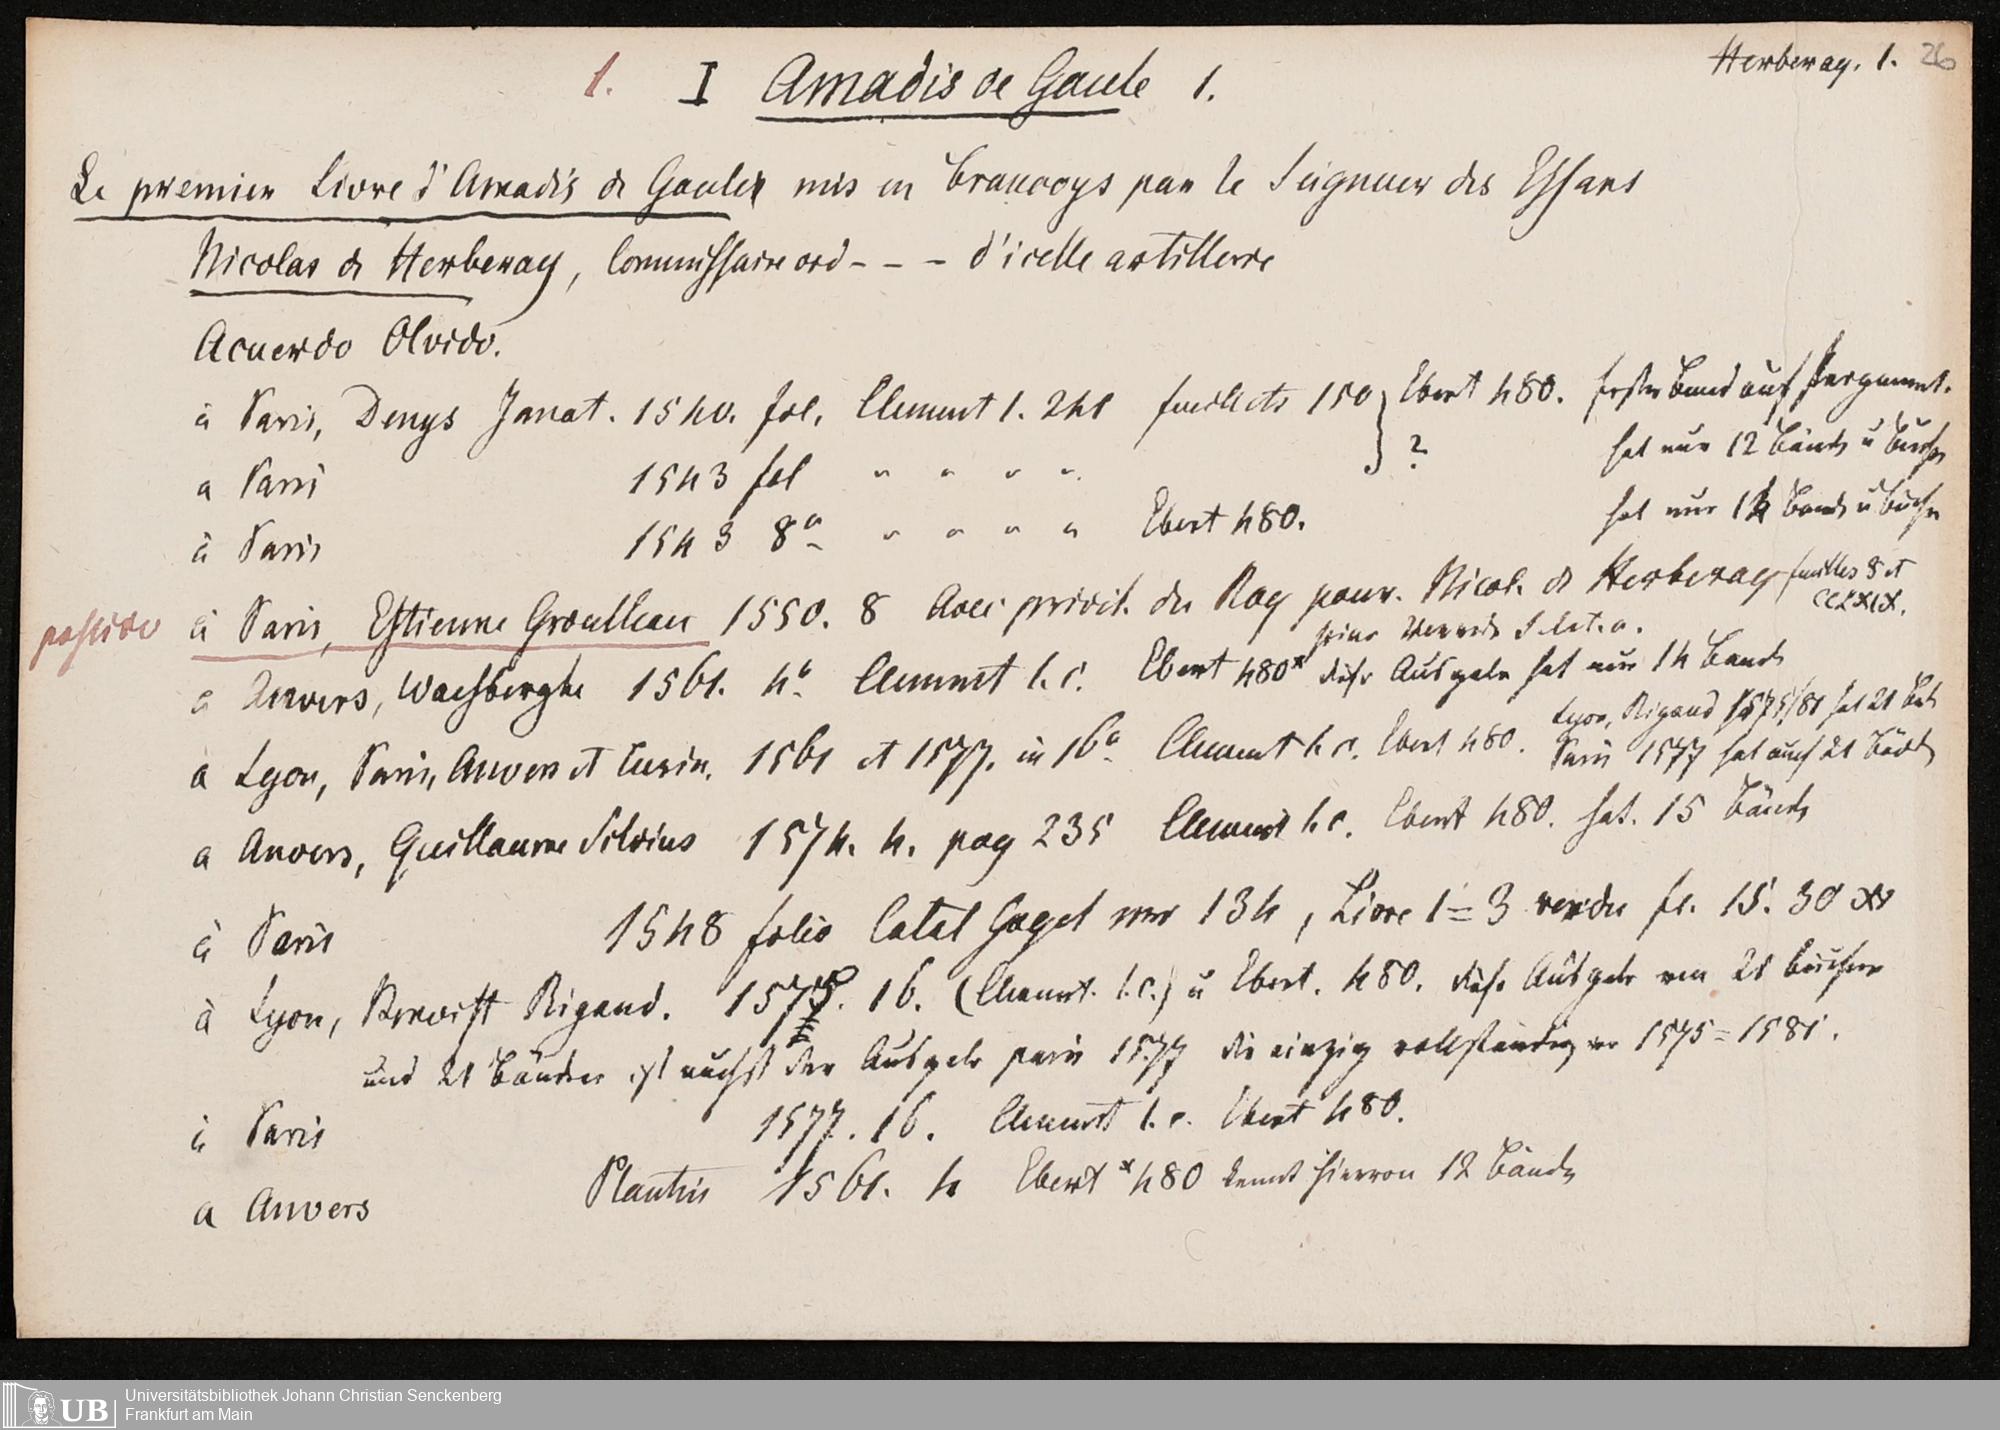 Herberay. 1. 26
1. I Amadis de Gaule 1.
Le premier Livre d'Amadis de Gaule mis en francoys par le Seigneur des Essars
Nicolas de Herberay, Commissaire ord - - - d'icelle artillerie
Acuerdo Olvido.
à Paris, Denys Janot. 1540. fol. Clement 1. 241 feuillets 150 } Ebert 480. erster Band auf Pergament.
a Paris 1543 fol " " " " ? hat nur 12 Bände u Bücher
à Paris 1543 8o " " " " Ebert 480. hat nur 14 Bände u Bücher
possideo à Paris, Estienne Groulleau 1550. 8 Avec privil. du Roy pour. Nicol. de Herberay feuilles 8 et CCLXIX.
a Anvers, Waesberghe 1561. 4o Clement l. c. Ebert 480* diese Ausgabe hat nur 14 Bände
a Lyon, Paris, Anvers et Turin. 1561 et 1577. in 16o Clement l. c. Ebert 480. Lyon, Rigaud 1575/81 hat 21 Bde
Paris 1577 hat auch 21 Bände
a Anvers, Guillaume Silvius 1574. 4. pag 235 Clement l. c. Ebert 480. hat. 15 Bände
à Paris 1548 folio Catal Goget 134, Livre 1=3 vendu fl. 15. 30 xr
à Lyon, Benoist Rigaud. 1575. 16. (Clement. l. c.) u Ebert. 480. diese Ausgabe von 21 Büchern
und 21 Bänden ist nächst der Ausgabe paris 1577 die einzig vollständige 1575=1581.
à Paris 1577. 16. Clement l. c. Ebert 480.
a Anvers Plantin 1561. 4 Ebert *480 kennt hiervon 12 Bände
UB Universitätsbibliothek Johann Christian Senckenberg
Frankfurt am Main